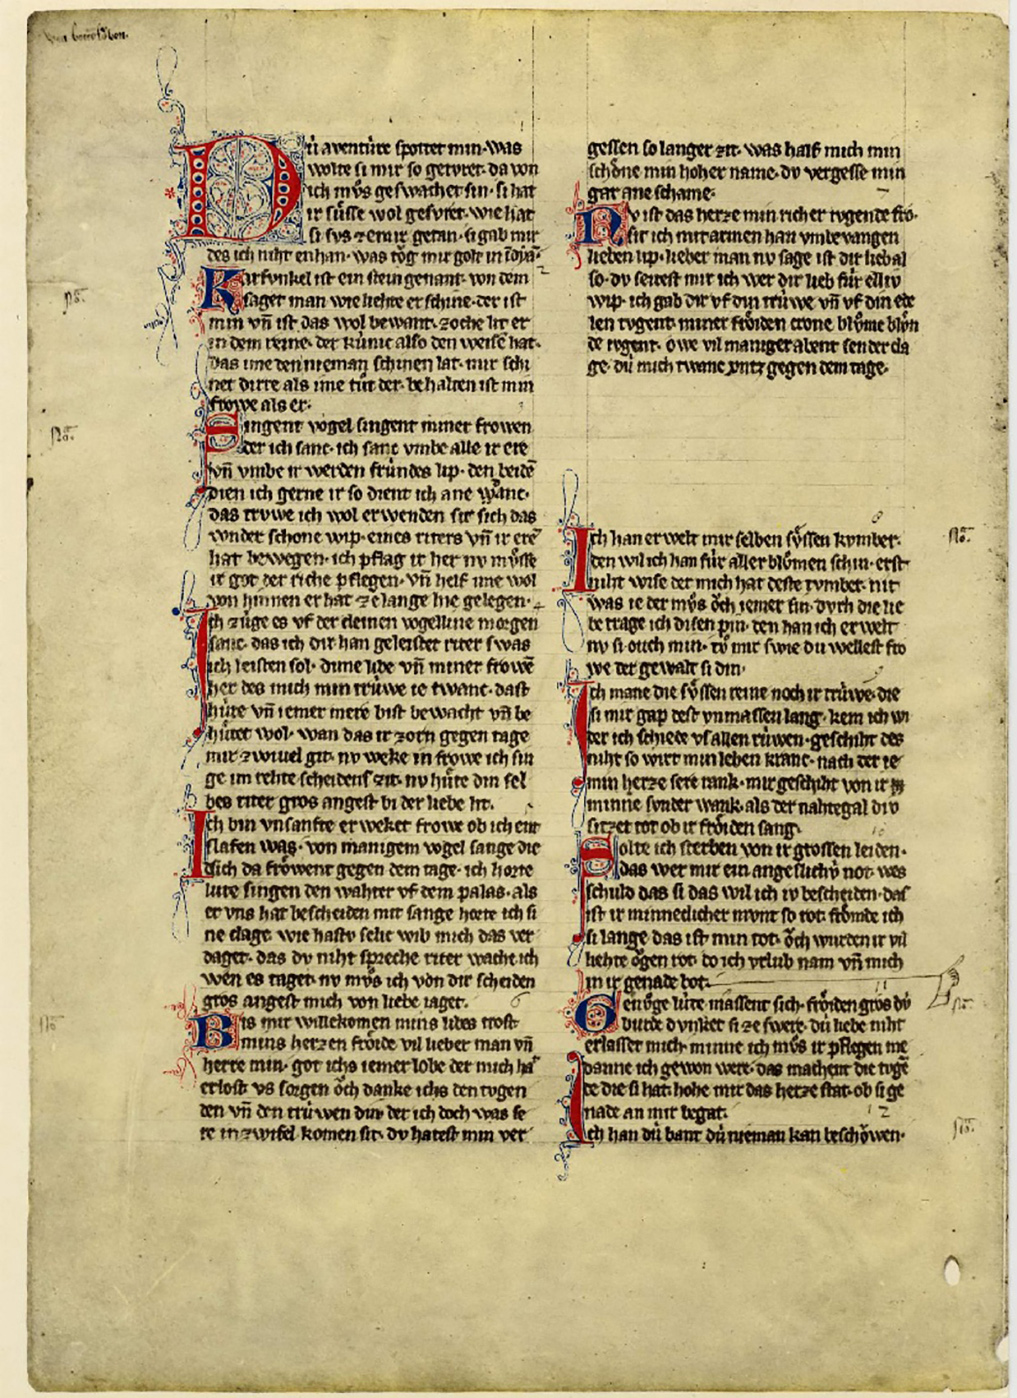 Dù aventùre spottet min· was
wolte si mir so getùret· da von
ich mv̊s geswachet sin· si hat
ir sùsse wol gefùret· wie hat
si svs zemir getan· si gab mir
des ich niht enhan· was tǒg mir golt in
Karfvnkel ist ein stein genant· von dem
saget man wie liehte er schine· der ist
min vn̄ ist das wol bewant· zoche lit er
in dem rine· der kùnic also den weisē hat·
das ime den nieman schinen lat· mir schi
net dirre als ime tůt der· behalten ist min
frowe als er·
Singent vogel singent miner frowen
der ich sanc· ich sanc vmbe alle ir ere
vn̄ vmbe ir werden frùndes lip· den beidē
dien ich gerne ir so dient ich ane wanc·
das trvwe ich wol erwenden sit sich das
wnder schone wip· eines riters vn̄ ir ere
hat bewegen· ich pflag ir her nv mv̊sse
ir got der riche pflegen· vn̄ helf ime wol
von hinnen er hat ze lange hie gelegen·
Ich zùge es vf der cleinen vogelline morgen
sanc· das ich dir han geleistet riter swas
ich leisten sol· dime libe vn̄ miner frowē
her des mich min trùwe ie twanc· dast
hùte vn̄ iemer mere bist bewacht vn̄ be
hùtet wol· wan das ir zorn gegen tage
mir zwiuel git· nv weke in frowe ich sin
ge im rehte scheidens zit· nv hùte din sel
bes riter gros angest bi der liebe lit.
Ich bin vnsanfte erweket frowe ob ich ent
slafen was· von manigem vogel sange die
sich da frǒwent gegen dem tage· ich horte
lute singen den wahter vf dem palas· als
er vns hat bescheiden mit sange horte ich si
ne clage· wie hastv selic wib mich das ver
daget· das dv niht spreche riter wache ich
wen es taget· nv mv̊s ich von dir scheiden
gros angest mich von liebe iaget.
Bis mir willekomen mins libes trost
mins herzen frǒide vil lieber man vn̄
herre min· got ichs iemer lobe der mich hat
erlost vs sorgen ǒch danke ichs den tvgen
den vn̄ den trùwen din der ich doch was se
re in zwifel komen sit· dv hatest min ver
gessen so langer zit· was half mich min
schǒne min hoher name· dv vergesse min
gar ane schame·
Nv ist das herze min richer tvgende fro·
sit ich mit armen han vmbevangen
lieben lip· lieber man nv sage ist dir lieb al
so· dv seitest mir ich wer dir lieb fùr ellù
wip· ich gab dir vf din trùwe vn̄ vf din ede
len tvgent· miner frǒiden crone blv̊me blv̊n
de tvgent· owe vil maniger abent sender cla
ge· dù mich twanc vntz gegen dem tage·
Ich han erwelt mir selben sv̊ssen kvmber·
den wil ich han fùr aller blv̊men schin· erst
niht wise der mich hat deste tvmber· nit
was ie der mv̊s ǒch iemer sin· dvrh die lie
be trage ich disen pin· den han ich erwelt
nv si ouch min· tv̊ mir swie du wellest fro
we der gewalt si din·
Ich mane die sv̊ssen reine noch ir trùwe· die
si mir gap dest vnmassen lang· kem ich wi
der ich schiede vs allen rùwen· geschiht des
niht so wirt min leben kranc· nach der ie
min herze sere rank· mir geschiht von ir
minne sonder wank· als der nahtegal div
sitzet tot ob ir frǒiden sang·
Solte ich sterben von ir grossen leiden·
das wer mir ein angesluchv̊ not· wes
schuld das si das wil ich iv bescheiden· das
ist ir minneclicher mvnt so rot· frǒmde ich
si lange das ist min tot· ǒch wurden ir vil
liehte ǒgen rot· do ich vrlub nam vn̄ mich
in ir genade bot·
Genv̊ge lùte massent sich· frǒiden gros dù
burde dvnket si ze swere· dù liebe niht
erlasset mich· minne ich mv̊s ir pflegen me
danne ich gewon were· das machent die tvgē
de die si hat· hohe mir das herze stat· ob si ge
nade an mir begat·
Ich han dù bant dù nieman kan beschǒwen·